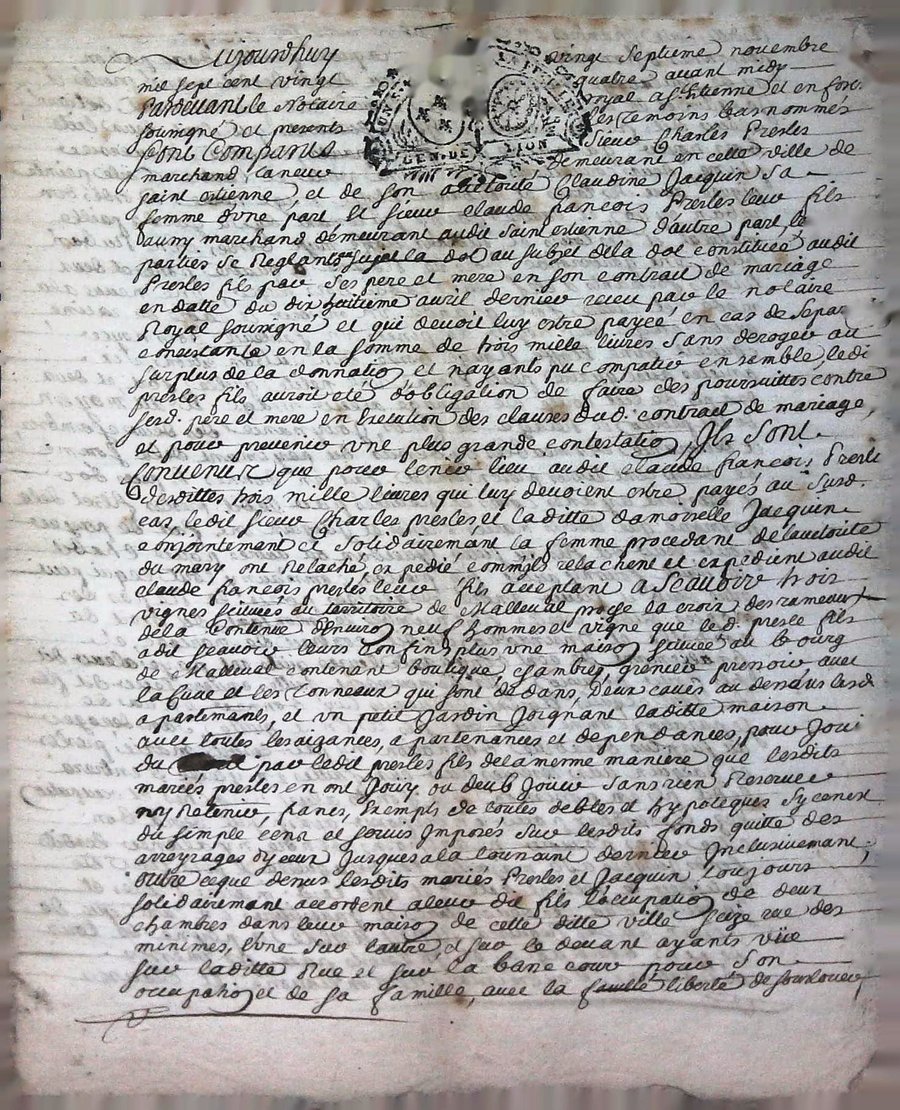 Aujourdhuy vingt septieme novembre
mil sept cent vingt quatre avant midy
Pardevant le Notaire royal a St Etienne et en forez
soussigné et presents les temoins bas nommés
Sont Comparus sieur Charles Presles
marchand demeurant en cette ville de
saint estienne, et de son authorité Claudine Jacquin sa
femme d'une part et sieur claude francois Presles leur fils
aussy marchand demeurant audit saint estienne d'autre part, le
parties se Reglants au subjet dela dot constituée audit
Presles fils par ses pere et mere en son contrait de mariage
en datte du dix huitieme avril dernier receu par le notaire
Royal soussigné et qui devoit luy estre payée en cas de separ
consistante en la somme de trois mille livres sans deroger au
surplus de la donnation et n'ayants pu compatir ensemble, ledi
presles fils auroit eté d'obligation de faire des poursuittes contre
sesd. pere et mere en Execution des clauses dud. contrait de mariage,
et pour prevenir une plus grande contestation, Ils sont
Convenus que pour tenir lieu audit claude francois Presle
desdittes trois mille livres qui luy devoient estre payés au susd.
cas, ledit sieur Charles presles et laditte damoiselle Jacquin
conjointement et solidairemant la femme procedant de lautorité
du mary ont Relaché, expedié comm'ils relachent et expedient audit
claude francois presles leur fils aceptant A Scavoir trois
vignes scituées au territoire de Malleval proche la croix des rameaux
dela Contenue denviron neuf hommes et vigne que led. presle fils
a dit scavoir leurs confins plus une maison scituée au bourg
de Malleval contenant boutique, chambres, greniers pressoir avec
la Cuve et les Tonneaux qui sont dedans, Deux caves au dessous lesd
apartemants, et un petit Jardin Joignant laditte maison
avec toutes les aizances, apartenances et dependances, pour Joui
du par ledit presles fils dela meme maniere que lesdits
mariés presles en ont Jouy, ou deub Jouir sans rien Reserver
ny Retenir, francs, Exempts de toutes debtes et hypoteques sy cenest
du simple cens et servis Imposés sur lesdits fonds quitte des
arreyrages d'yceux Jusques a la toussaint derniere Inclusivemant,
outre ceque dessus lesdits mariés Presles et Jacquin toujours
solidairemant accordent a leur dit fils l'occupation de deux
chambres dans leur maison de cette ditte ville seize rue des
minimes, l'une sur l'autre, et sur le devant ayants vüe
sur laditte Rue et sur la basse cour pour son
occupation et de sa famille, avec la liberté de sorlouer,